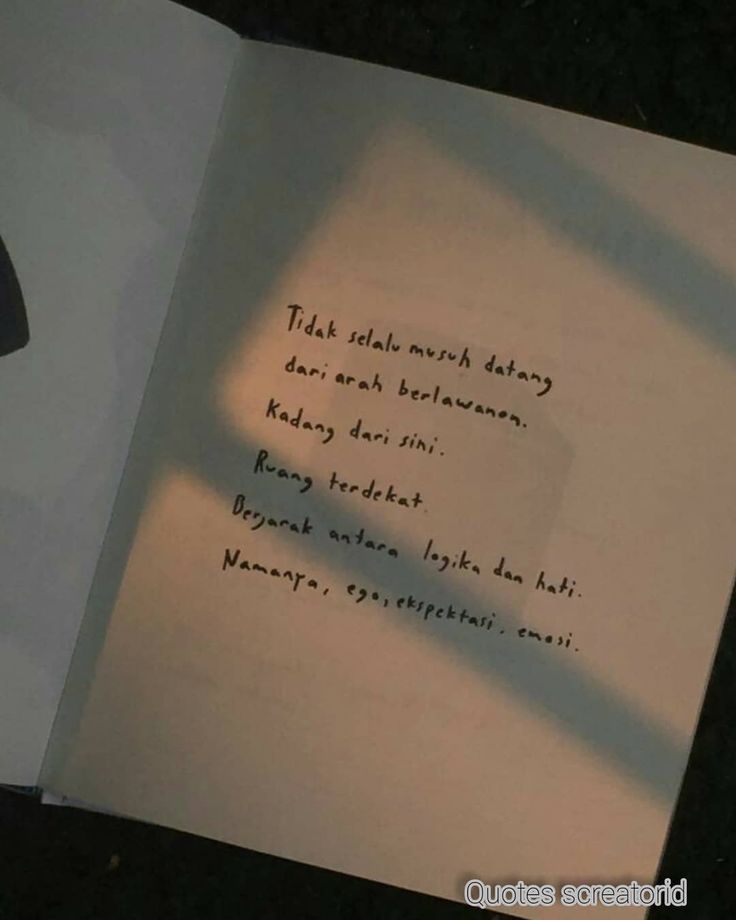 Tidak selalu musuh datang
dari arah berlawanan.
Kadang dari sini.
Ruang terdekat.
Berjarak antara logika dan hati.
Namanya, ego, ekspektasi, emosi.
Quotes screatorid